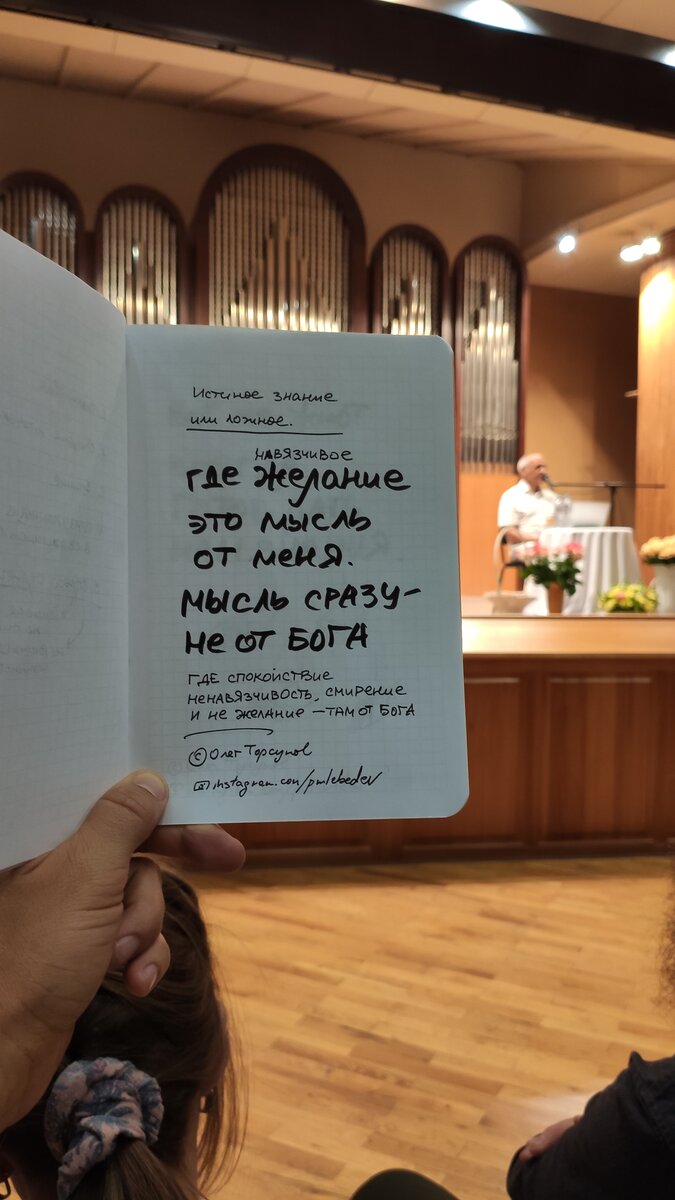 Истиное знание
или ложное.
навязчивое
где желание
это мысль
от меня.
мысль сразу-
не от БОГА
где спокойствие
ненавязчивость, смирение
и не желание – там от БОГА
© Олег Торсунов
instagram.com/pmlebedev